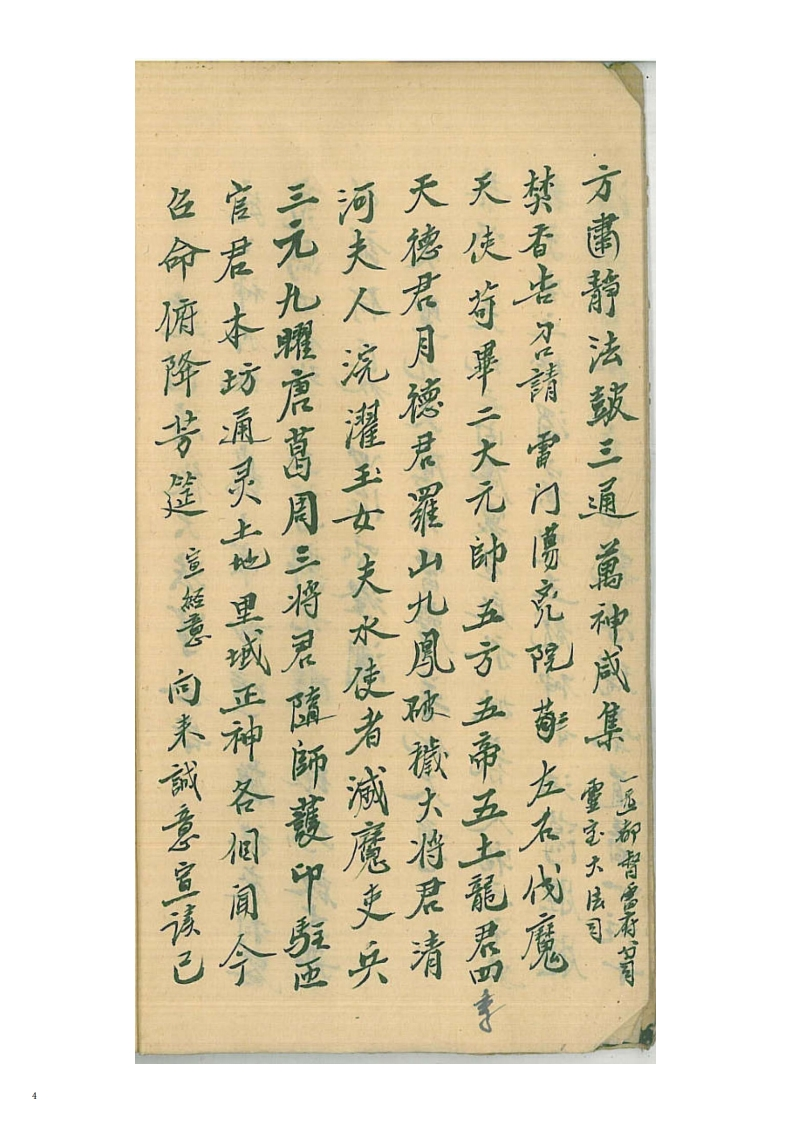 方肅靜法鼓三通萬神咸集 一正都督雷府
靈宝大法司
焚香告召請雷门蕩兇院 左右伐魔
天使苟畢二大元帥五方五帝五土龍君四季
天德君月德君羅山九鳳破穢大将君清
河夫人浣濯玉女夫水使者滅魔吏兵
三元九曜唐葛周三将君隨師護印駐匝
官君本坊通灵土地里域正神各徊聞今
召命俯降芳筵 宣經意 向来誠意宣讀已
4